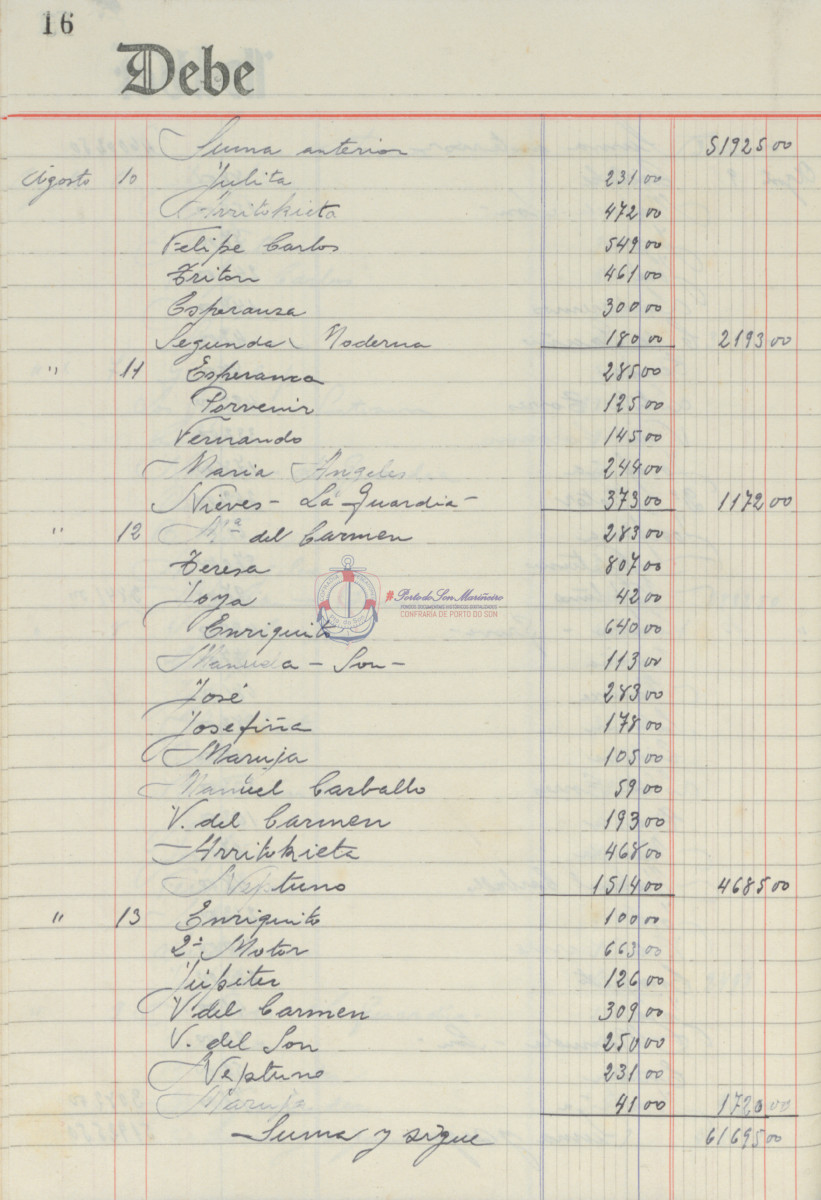 16
Debe
Suma anterior 51925 00
Agosto 10 Julita 231 00
Arritokieta 472 00
Felipe Carlos 549 00
Triton 461 00
Esperanza 300 00
Segunda Moderna 180 00 2193 00
" 11 Esperanza 285 00
Porvenir 125 00
Fernando 145 00
Maria Angeles 244 00
Nieves - La Guardia - 373 00 1172 00
" 12 Mª del Carmen 283 00
Teresa 807 00
Joya 42 00
Enriquito 640 00
Manuela - Son - 113 00
José 283 00
Josefiña 178 00
Maruja 105 00
Manuel Carballo 59 00
V. del Carmen 193 00
Arritokieta 468 00
Neptuno 1514 00 4685 00
" 13 Enriquito 100 00
2º Motor 663 00
Júpiter 126 00
V. del Carmen 309 00
V. del Son 250 00
Neptuno 231 00
Maruja 41 00 1720 00
Suma y sigue 61695 00
#Porto do Son Mariñeiro
FONDOS DOCUMENTAIS HISTÓRICOS DIXITALIZADOS
CONFRARIA DE PORTO DO SON